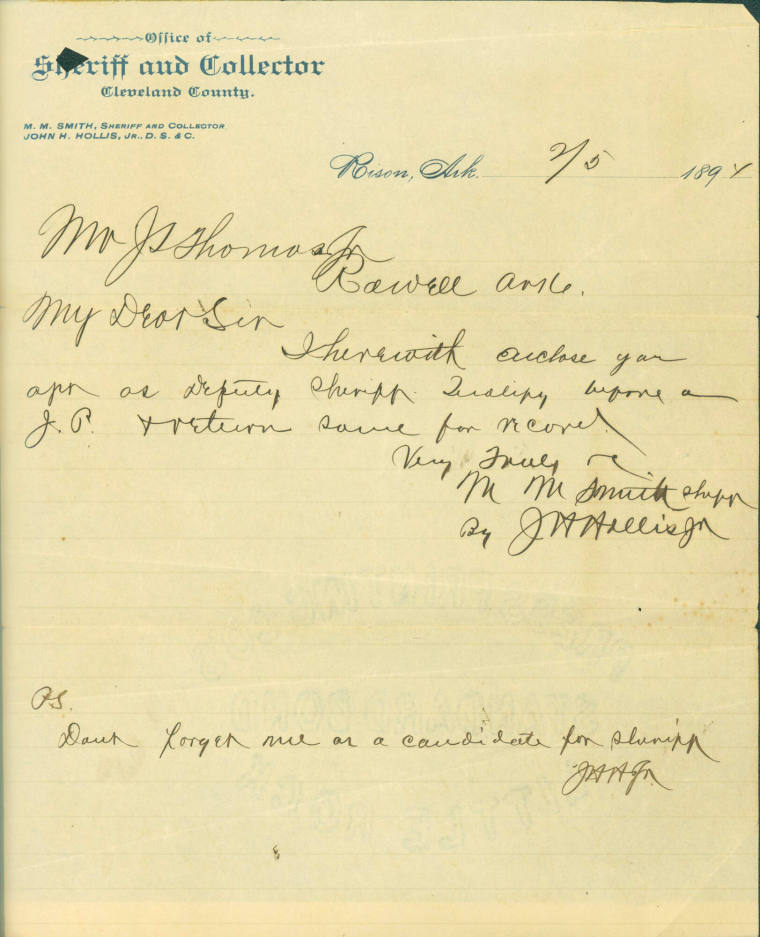 Office of
Sheriff and Collector
Cleveland County.
M. M. SMITH, SHERIFF AND COLLECTOR
JOHN H. HOLLIS, JR., D. S. & C.
Rison, Ark. 2/5 1894
Mr J S Thomas Jr
Rowell Arks.
My Dear Sir
I herewith enclose you
apt as deputy sheriff. Qualify before a
J. P. & return same for record.
Very Truly
M M Smith Shff
By J H Hollis Jr
PS.
Dont forget me as a candidate for sheriff
JHH Jr.
STANDARD BOND
LITTLE ROCK